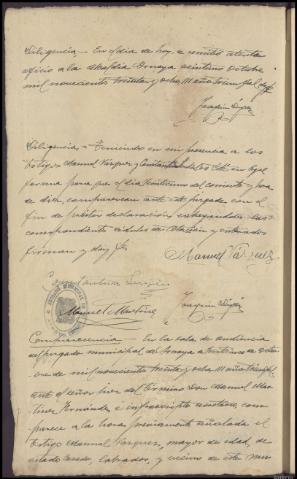 Diligencia - En el día de hoy, se remite atento
oficio a la Alcaldía Amaya veintiuno Octubre
mil novecientos treinta y ocho II Año triunfal doy fé
Joaquín
Diligencia = Teniendo en mi presencia a los
testigos Manuel Vázquez y Constantino les cité en legal
forma para que el día veintiuno del corriente y hora
de diez, comparezcan ante este juzgado con el
fin de recibirles declaración entregándoles las
correspondientes cédulas de citación y enterados
firman y doy fé
Manuel Vázquez
Constantino
Manuel Martínez Joaquín
Comparecencia - En la sala de audiencia
del juzgado municipal de Amaya a veintiuno de octu-
bre de mil novecientos treinta y ocho II Año triunfal
ante el señor Juez del término Don Manuel Mar-
tínez Fernández e infrascripto secretario, com-
parece a la hora previamente señalada el
testigo Manuel Vázquez, mayor de edad, de
estado casado, labrador, y vecino de este mun-